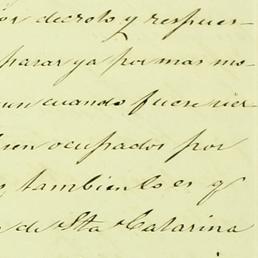 or decreto y respues-
parar ya por mas mo-
un cuando fuere cier
ren ocupados por
tambien lo es q
de Sta Catarina